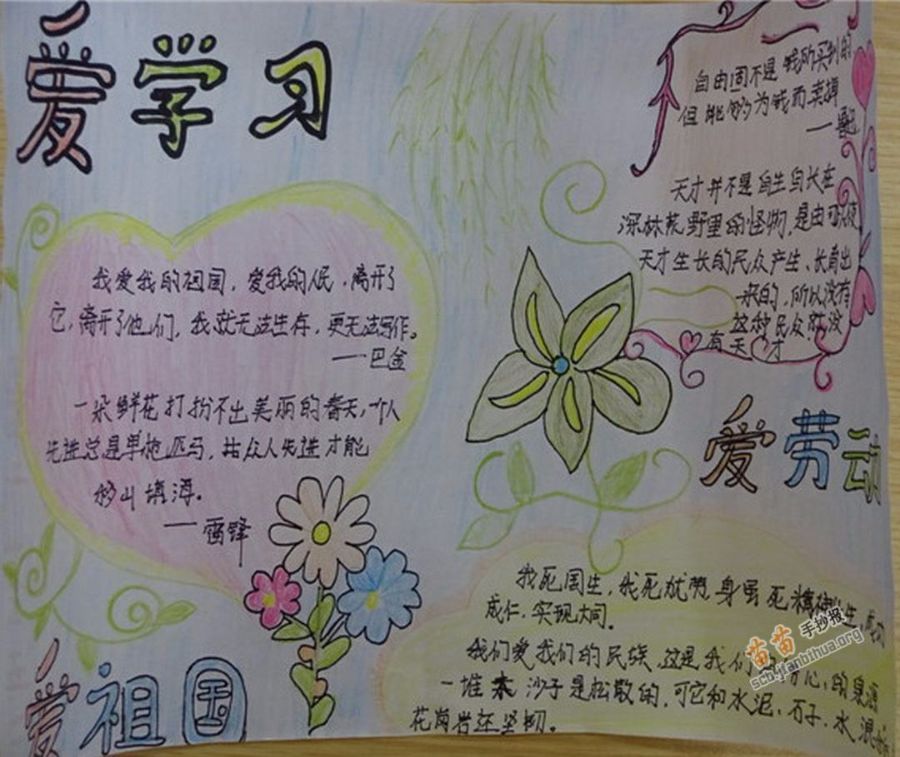 爱学习
自由固不是钱所买到的
但能够为钱而卖掉
天才并不是自生自长在
深林荒野里的怪物，是由可以使
天才生长的民众产生、长育出
来的，所以没有
这种民众就没
有天才
我爱我的祖国，爱我的人民，离开了
它，离开了他们，我就无法生存，更无法写作。
——巴金
一朵鲜花打扮不出美丽的春天，一个人
先进总是单枪匹马，众人先进才能
移山填海。
——雷锋
爱劳动
我死国生，我死犹荣，身虽死精神生，成功
成仁，实现大同。
我们爱我们的民族，这是我们自信心的泉源
一堆 沙子是松散的，可它和水泥、石子、水
花岗岩还坚韧。
爱祖国
苗苗手抄报
scb.jianbihua.org